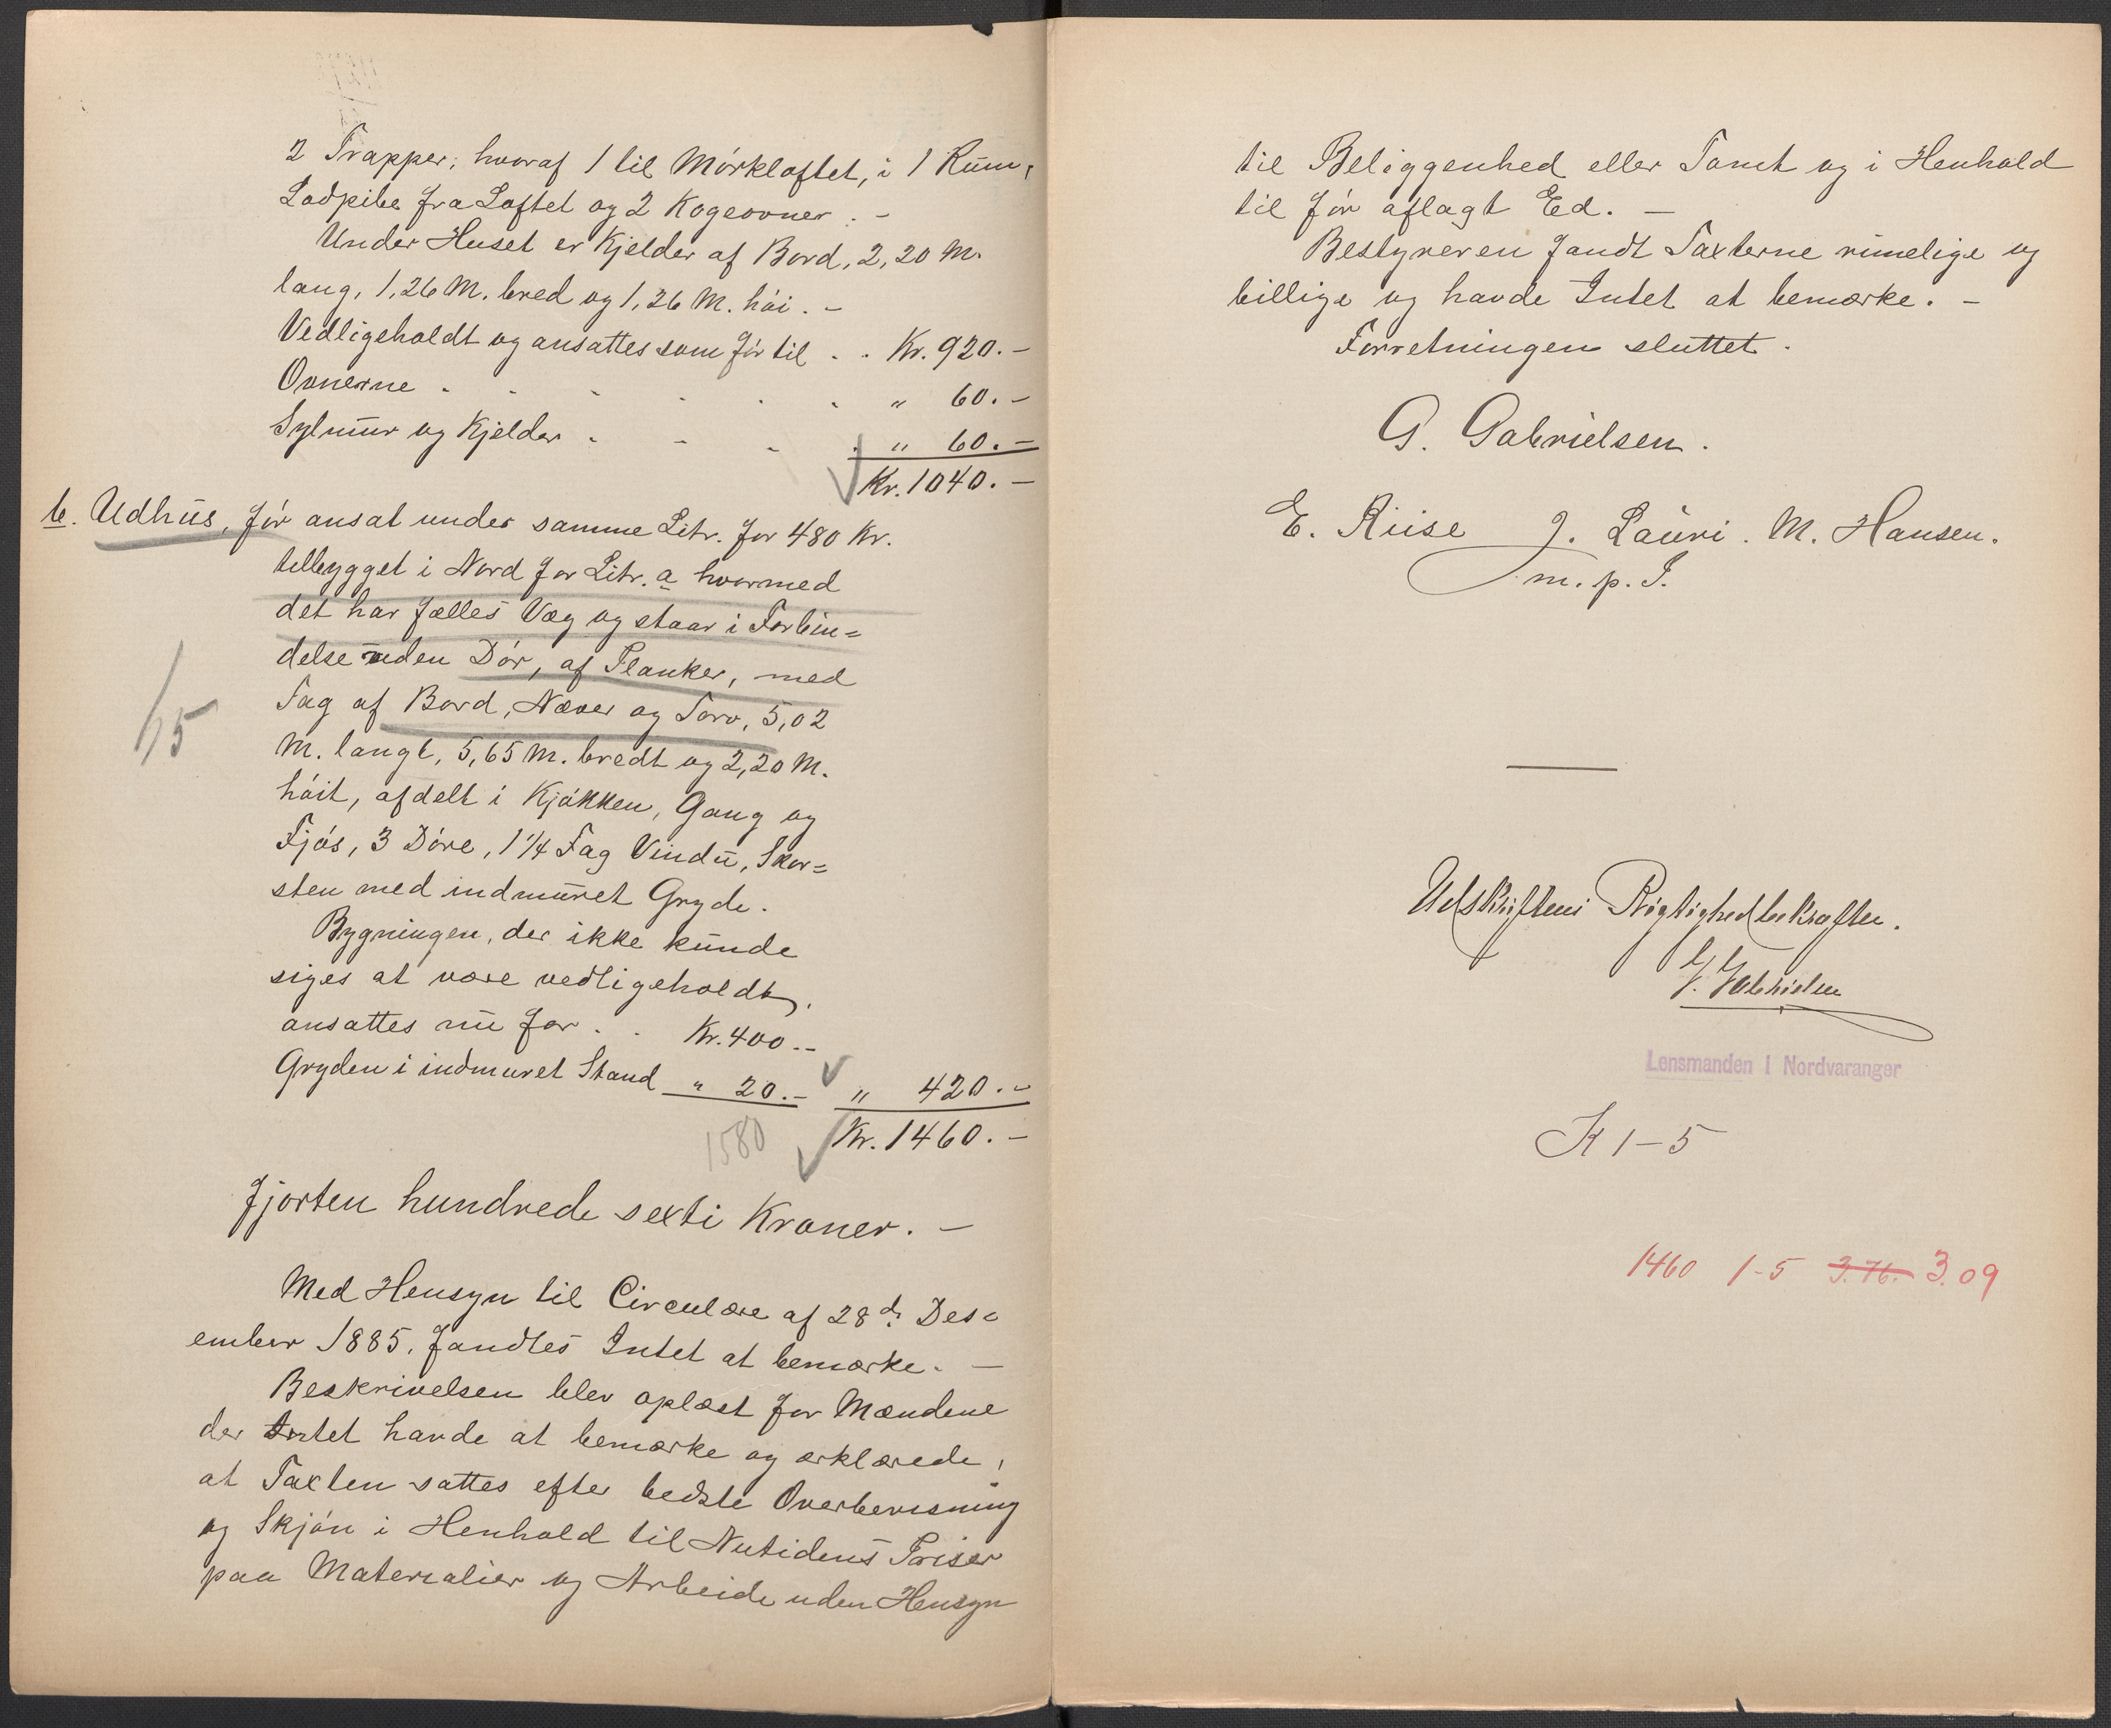 2 Trapper, hvoraf 1 til Mörkloftet, i 1 Rum,
Lodpibe fra Loftet og 2 Kogeovner. –
Under Huset er Kjelder af Bord, 2,20 M.
lang, 1,26 M. bred og 1,26 M. höi. –
Vedligeholdt og ansattes som för til . . Kr. 920. –
Ovnerne . . . . . . " 60. –
Sylmur og Kjelder . . . . " 60. –
Kr. 1040. –
b. Udhus, för ansat under samme Litr. for 480 Kr.
tilbygget i Nord for Litr. a hvormed
det har fælles Væg og staar i Forbin=
delse uden Dör, af Planker, med
Tag af Bord, Næver og Torv, 5,02
M. langt, 5,65 M. bredt og 2,20 M.
höit, afdelt i Kjökken, Gang og
Fjös, 3 Döre, 1 1/4 Fag Vindu, Skor=
sten med indmuret Gryde.
Bygningen, der ikke kunde
siges at være vedligeholdt,
ansattes nu for . . Kr. 400. –
Gryden i indmuret Stand " 20. – " 420. –
1580 Kr. 1460. –
fjorten hundrede sexti Kroner. –
Med Hensyn til Circulære af 28d. Des=
ember 1885. fandtes Intet at bemærke. –
Beskrivelsen blev oplæst for Mændene
der Intet havde at bemærke og erklærede,
at Taxten sattes efter bedste Overbevisning
og Skjön i Henhold til Nutidens Priser
paa Materialier og Arbeide uden Hensyn
til Beliggenhed eller Tomt og i Henhold
til för aflagt Ed. –
Bestyreren fandt Taxterne rimelige og
billige og havde Intet at bemærke. –
Forretningen sluttet.
G. Gabrielsen.
E. Riise J. Lauri. M. Hansen.
m. p. P.
Udskriftens Rigtighed bekræftes.
G. Gabrielsen
Lensmanden i Nordvaranger
K 1-5
1460 1-5 3.76. 3.09